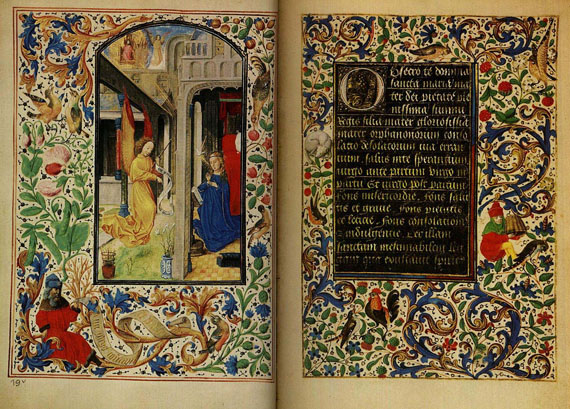 O bsecro te domina
sancta maria ma
ter dei pietate ple
nissima summi
Regis filia mater gloriosissia
mater orphanorum con
solatio desolatorum via erran
tium salus in te sperantium
virgo ante partum virgo in
partu Et virgo post partum
fons misericordie. fons salu
tis et gratie. fons pietatis
et leticie. fons consolationis
et indulgentie. Per illam
sanctam
19v